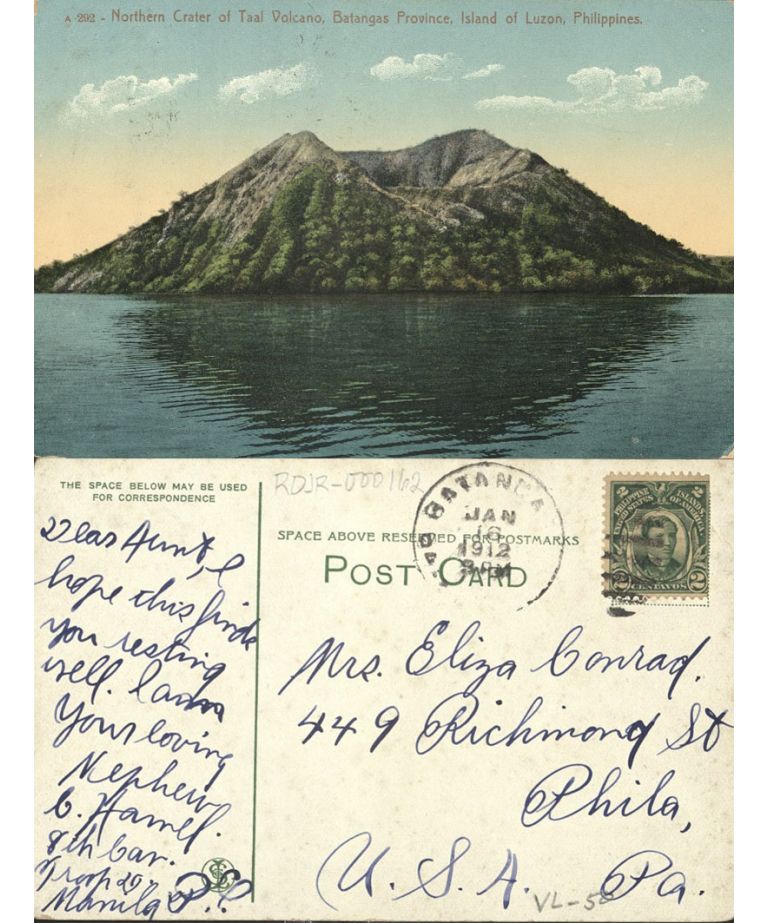 A 292 - Northern Crater of Taal Volcano, Batangas Province, Island of Luzon, Philippines.
THE SPACE BELOW MAY BE USED
FOR CORRESPONDENCE
RDJR-000162
BATANGA
JAN
16
1912
PM
2 PHILIPPINE ISLANDS 2
UNITED STATES OF AMERICA
2 CENTAVOS 2
SPACE ABOVE RESERVED FOR POSTMARKS
POST CARD
Dear Aunt, I
hope this finds
you resting
well. I am
Your loving
Nephew
C. Hamel.
8th Cav.
Troop
Manila P.I.
Mrs. Eliza Conrad,
449 Richmond St
Phila,
Pa.
U. S. A.
VL-58